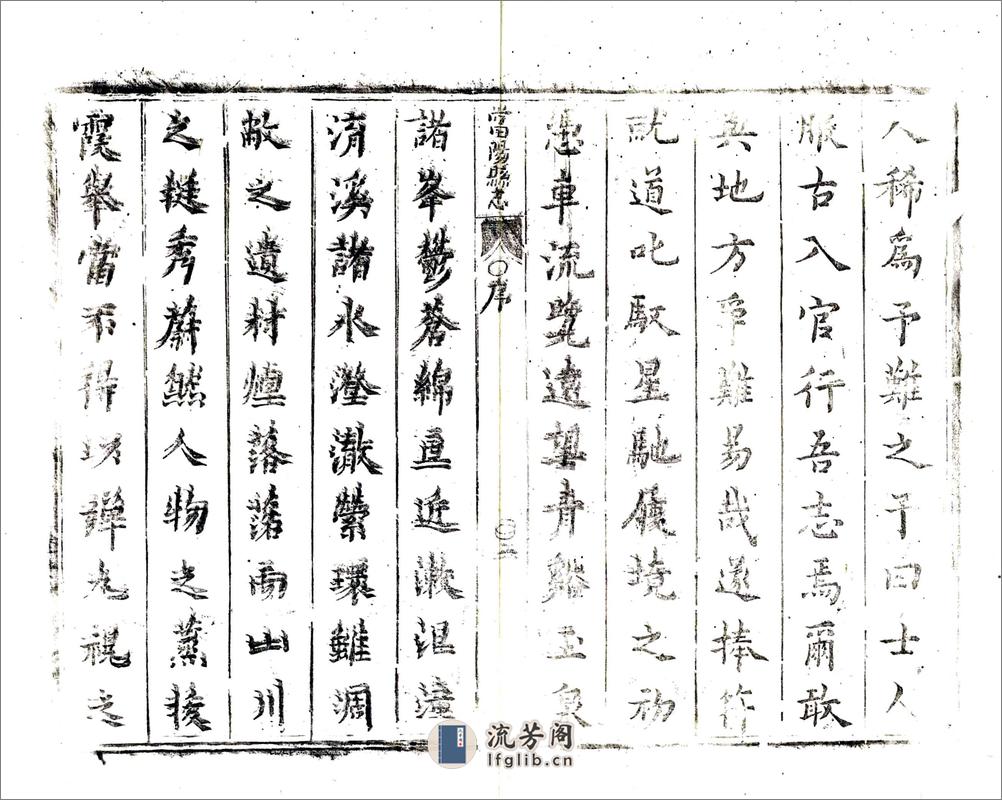 人稀爲予難之予曰士人
脈古入官行吾志焉爾敢
與地方爭難易哉遂捧
就道叱馭星馳履境之初
憑車流覽遠望青谿玉泉
當陽縣志
序
二
諸峯鬱蒼綿亘近漱沮漳
淯溪諸水瀅澈縈環雖凋
敝之遺村煙落落而山川
之挺秀蔚然人物之蒸
霞舉當不得以彈丸視之
流芳阁
lfglib.cn